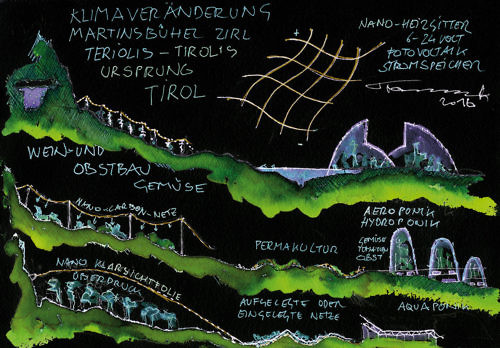 KLIMAVERÄNDERUNG
MARTINSBÜHEL ZIRL
TERIOLIS – TIROLIS
URSPRUNG
TIROL
NANO-HEIZGITTER
6-24 VOLT
FOTOVOLTAIK
STROMSPEICHER
2016
+
-
WEIN- UND
OBSTBAU
GEMÜSE
NANO-CARBON-NETZ
PERMAKULTUR
AEROPONIK
HYDROPONIK
GEMÜSE
TOMATEN
OBST
NANO KLARSICHTFOLIE
ÜBERDRUCK
AUFGELEGTE ODER
EINGELEGTE NETZE
AQUAPONIK